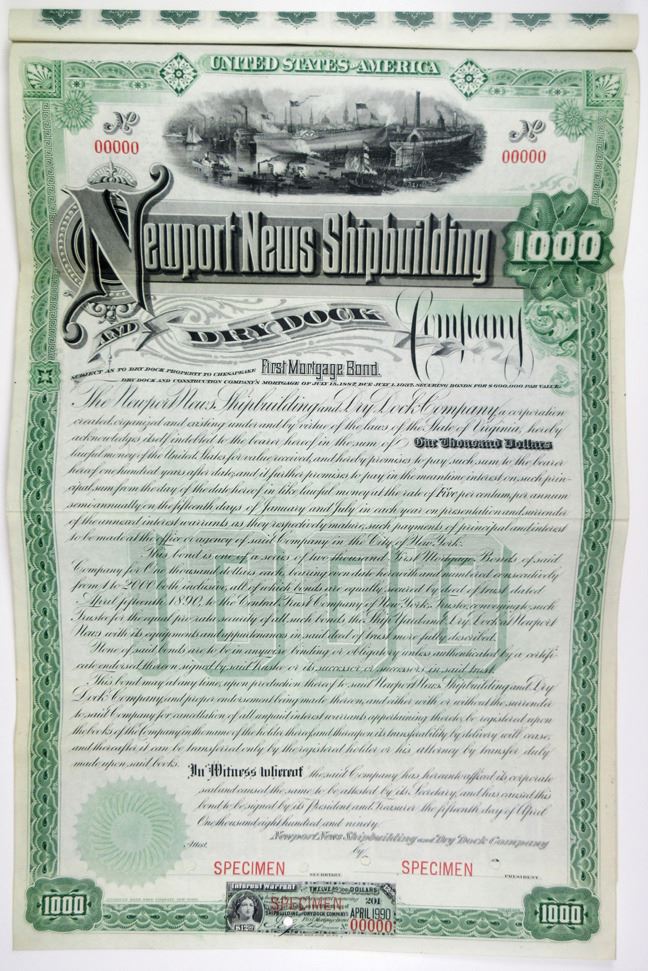 UNITED STATES OF AMERICA
No
00000
No
00000
Newport News Shipbuilding
1000
AND DRY DOCK Company
First Mortgage Bond.
SUBJECT AS TO DRY DOCK PROPERTY TO CHESAPEAKE
DRY DOCK AND CONSTRUCTION COMPANY'S MORTGAGE OF JULY 1887, DUE JULY 1, 1937, SECURING BONDS FOR $600,000 PAR VALUE.
The Newport News Shipbuilding and Dry Dock Company, a corporation
created, organized and existing under and by virtue of the laws of the State of Virginia, hereby
acknowledges itself indebted to the bearer hereof in the sum of One Thousand Dollars
lawful money of the United States for value received, and hereby promises to pay such sum to the bearer
hereof one hundred years after date, and it further promises to pay in the meantime interest on such prin-
cipal sum from the day of the date hereof in like lawful money at the rate of Five per centum per annum
semi-annually on the fifteenth days of January and July in each year on presentation and surrender
of the annexed interest warrants as they respectively mature, such payments of principal and interest
to be made at the office or agency of said Company in the City of New York.
This bond is one of a series of two thousand First Mortgage Bonds of said
Company for One thousand dollars each, bearing even date herewith and numbered consecutively
from 1 to 2000 both inclusive, all of which bonds are equally secured by deed of trust dated
April fifteenth 1890, to the Central Trust Company of New York, Trustee, conveying to such
Trustee for the equal pro rata security of all such bonds the Ship Yard and Dry Dock at Newport
News with its equipments and appurtenances in said deed of trust more fully described.
None of said bonds are to be in anywise binding or obligatory unless authenticated by a certifi-
cate endorsed thereon signed by said trustee or its successor or successors in said trust.
This bond may at any time, upon production thereof to said Newport News Shipbuilding and Dry
Dock Company, and proper endorsement being made thereon, and either with or without the surrender
to said Company for cancellation of all unpaid interest warrants appertaining thereto, be registered upon
the books of the Company in the name of the holder thereof and thereupon its transferability by delivery will cease,
and thereafter it can be transferred only by the registered holder or his attorney by transfer duly
made upon said books.
In Witness whereof the said Company has hereunto affixed its corporate
seal and caused the same to be attested by its Secretary, and has caused this
bond to be signed by its President and Treasurer the fifteenth day of April
One thousand eight hundred and ninety.
Newport News Shipbuilding and Dry Dock Company
Attest by
SPECIMEN
SECRETARY.
SPECIMEN
PRESIDENT.
1000
Interest Warrant TWELVE 50/100 DOLLARS
SPECIMEN
201
SHIPBUILDING AND DRY DOCK COMPANY
APRIL 1990
$12.50
No 00000
1000